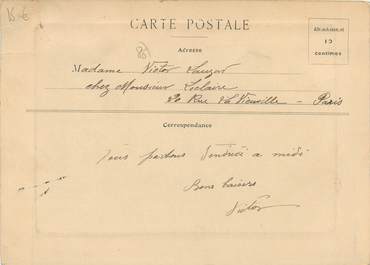 15 €
CARTE POSTALE
Affranchissement
10
centimes
(85)
Adresse
Madame Victor
chez Monsieur Leclaire
20 Rue La Vieuville - Paris
Correspondance
Nous partons Vendredi a midi
Bons baisers
Victor